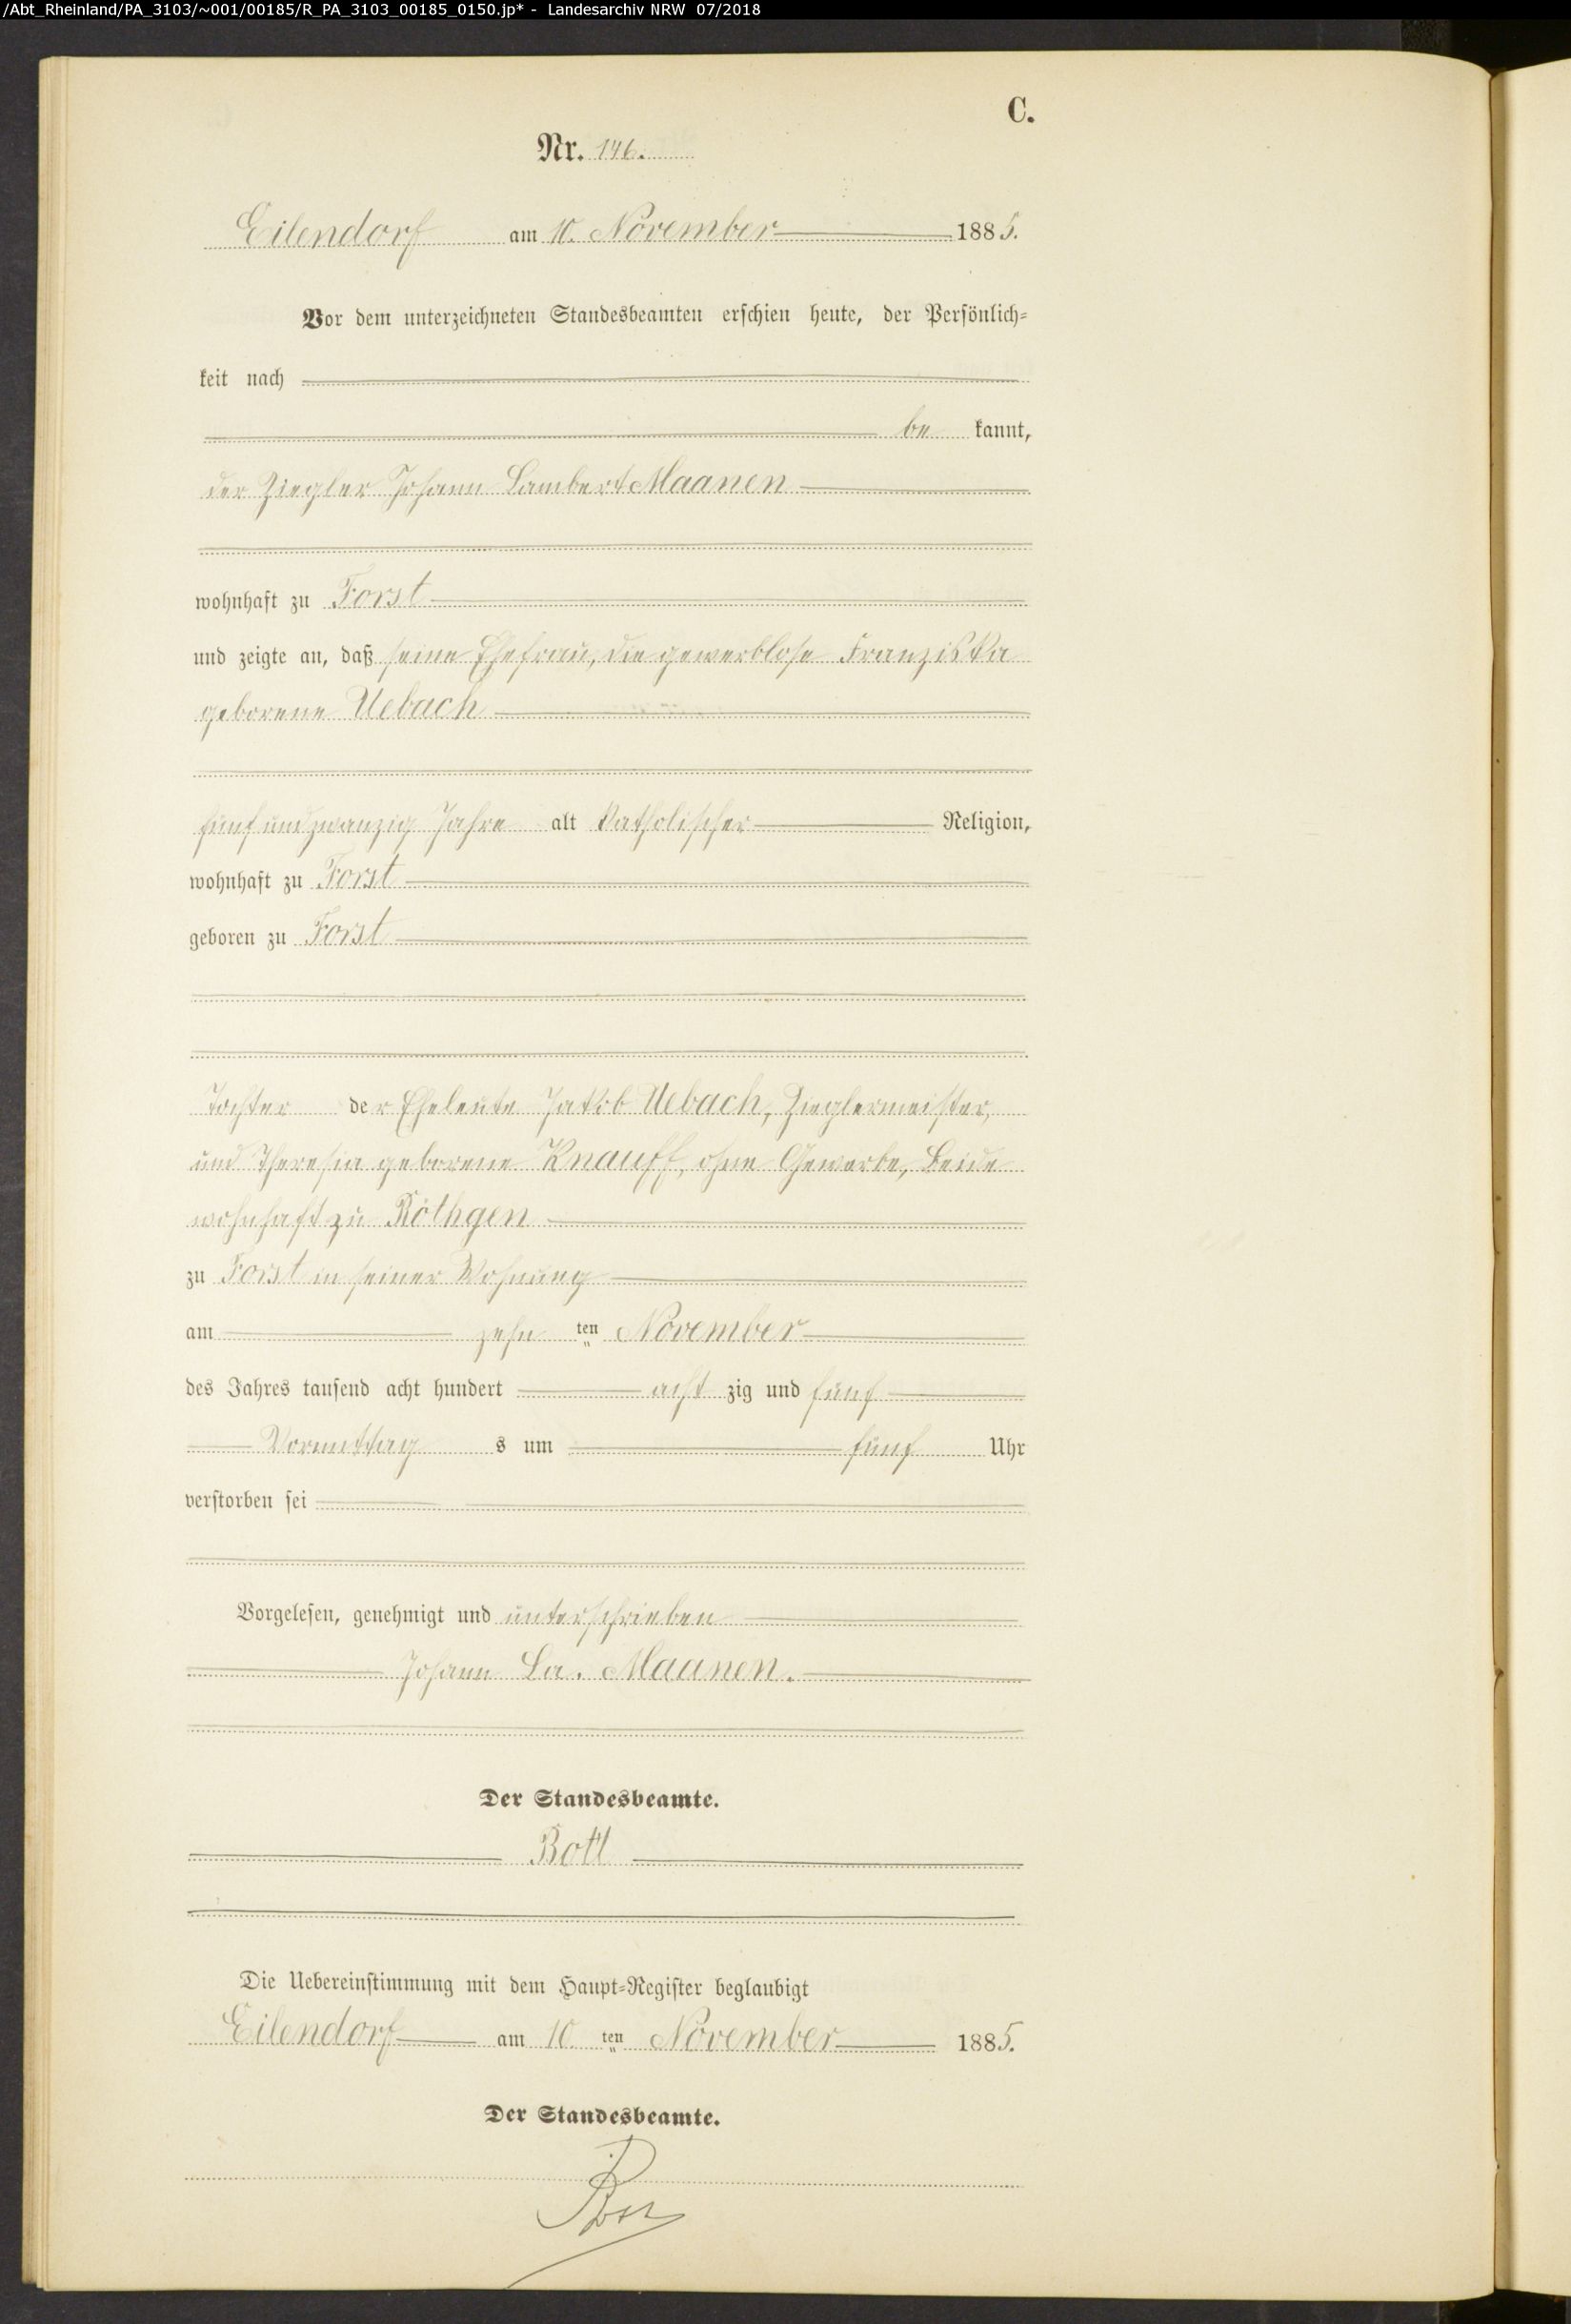 /Abt_Rheinland/PA_3103/~001/00185/R_PA_3103_00185_0150.jp* - Landesarchiv NRW 07/2018
C.
Nr. 146.
Eilendorf am 10. November 1885.
Vor dem unterzeichneten Standesbeamten erschien heute, der Persönlich-
keit nach
be kannt,
der Ziegler Johann Lambert Maanen
wohnhaft zu Forst
und zeigte an, daß seine Ehefrau, die gewerblose Franziska
geborene Uebach
fünf und zwanzig Jahre alt katholischer Religion,
wohnhaft zu Forst
geboren zu Forst
Tochter der Eheleute Jakob Uebach, Zieglermeister,
und Theresia geborene Knauff, ohne Gewerbe, Beide
wohnhaft zu Röthgen
zu Forst in seiner Wohnung
am zehn ten November
des Jahres tausend acht hundert acht zig und fünf
Vormittag s um fünf Uhr
verstorben sei
Vorgelesen, genehmigt und unterschrieben
Johann La. Maanen.
Der Standesbeamte.
Die Uebereinstimmung mit dem Haupt-Register beglaubigt
Eilendorf am 10. ten November 1885.
Der Standesbeamte.